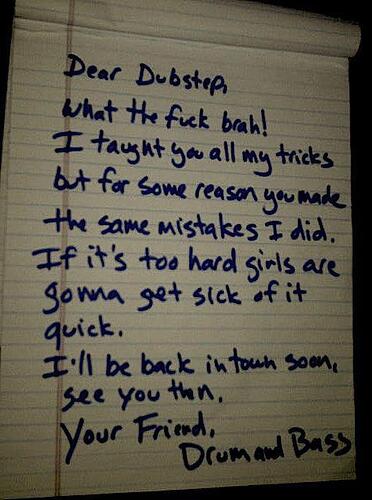 Dear Dubstep,
what the fuck brah!
I taught you all my tricks
but for some reason you made
the same mistakes I did.
If it's too hard girls are
gonna get sick of it
quick.
I'll be back in town soon,
see you then.
Your Friend,
Drum and Bass